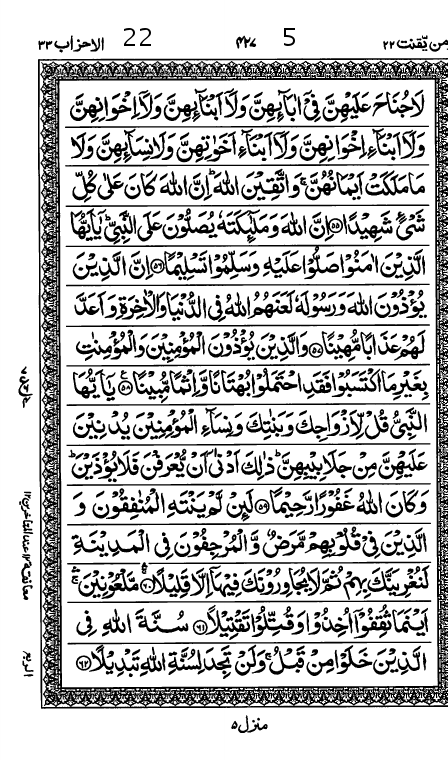 ومن يقنت ٢٢ 5 ٤٢٧ 22 الاحزاب ٣٣
لَاجُنَاحَ عَلَيْهِنَّ فِيْٓ اٰبَآئِهِنَّ وَلَآ اَبْنَآئِهِنَّ وَلَآ اِخْوَانِهِنَّ
وَلَآ اَبْنَآءِ اِخْوَانِهِنَّ وَلَآ اَبْنَآءِ اَخَوٰتِهِنَّ وَلَا نِسَآئِهِنَّ وَلَا
مَا مَلَكَتْ اَيْمَانُهُنَّ ۚ وَاتَّقِيْنَ اللّٰهَ ؕ اِنَّ اللّٰهَ كَانَ عَلٰى كُلِّ
شَيْءٍ شَهِيْدًا ﴿٥٥﴾ اِنَّ اللّٰهَ وَمَلٰٓئِكَتَهٗ يُصَلُّوْنَ عَلَى النَّبِيِّ ؕ يٰٓاَيُّهَا
الَّذِيْنَ اٰمَنُوْا صَلُّوْا عَلَيْهِ وَسَلِّمُوْا تَسْلِيْمًا ﴿٥٦﴾ اِنَّ الَّذِيْنَ
يُؤْذُوْنَ اللّٰهَ وَرَسُوْلَهٗ لَعَنَهُمُ اللّٰهُ فِي الدُّنْيَا وَالْاٰخِرَةِ وَاَعَدَّ
لَهُمْ عَذَابًا مُّهِيْنًا ﴿٥٧﴾ وَالَّذِيْنَ يُؤْذُوْنَ الْمُؤْمِنِيْنَ وَالْمُؤْمِنٰتِ
بِغَيْرِ مَا اكْتَسَبُوْا فَقَدِ احْتَمَلُوْا بُهْتَانًا وَّاِثْمًا مُّبِيْنًا ﴿٥٨﴾ يٰٓاَيُّهَا
النَّبِيُّ قُلْ لِّاَزْوَاجِكَ وَبَنٰتِكَ وَنِسَآءِ الْمُؤْمِنِيْنَ يُدْنِيْنَ
عَلَيْهِنَّ مِنْ جَلَابِيْبِهِنَّ ؕ ذٰلِكَ اَدْنٰٓى اَنْ يُّعْرَفْنَ فَلَا يُؤْذَيْنَ ؕ
وَكَانَ اللّٰهُ غَفُوْرًا رَّحِيْمًا ﴿٥٩﴾ لَئِنْ لَّمْ يَنْتَهِ الْمُنٰفِقُوْنَ وَ
الَّذِيْنَ فِيْ قُلُوْبِهِمْ مَّرَضٌ وَّالْمُرْجِفُوْنَ فِي الْمَدِيْنَةِ
لَنُغْرِيَنَّكَ بِهِمْ ثُمَّ لَا يُجَاوِرُوْنَكَ فِيْهَآ اِلَّا قَلِيْلًا ﴿٦٠﴾ مَّلْعُوْنِيْنَ ۚ
اَيْنَمَا ثُقِفُوْٓا اُخِذُوْا وَقُتِّلُوْا تَقْتِيْلًا ﴿٦١﴾ سُنَّةَ اللّٰهِ فِي
الَّذِيْنَ خَلَوْا مِنْ قَبْلُ ۚ وَلَنْ تَجِدَ لِسُنَّةِ اللّٰهِ تَبْدِيْلًا ﴿٦٢﴾
معانقة ١٢ عند المتأخرين ١٢
الربع
منزل ٥